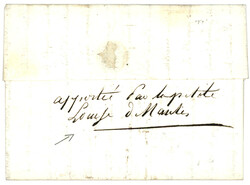 apporté par la petite
Louise de Nantes